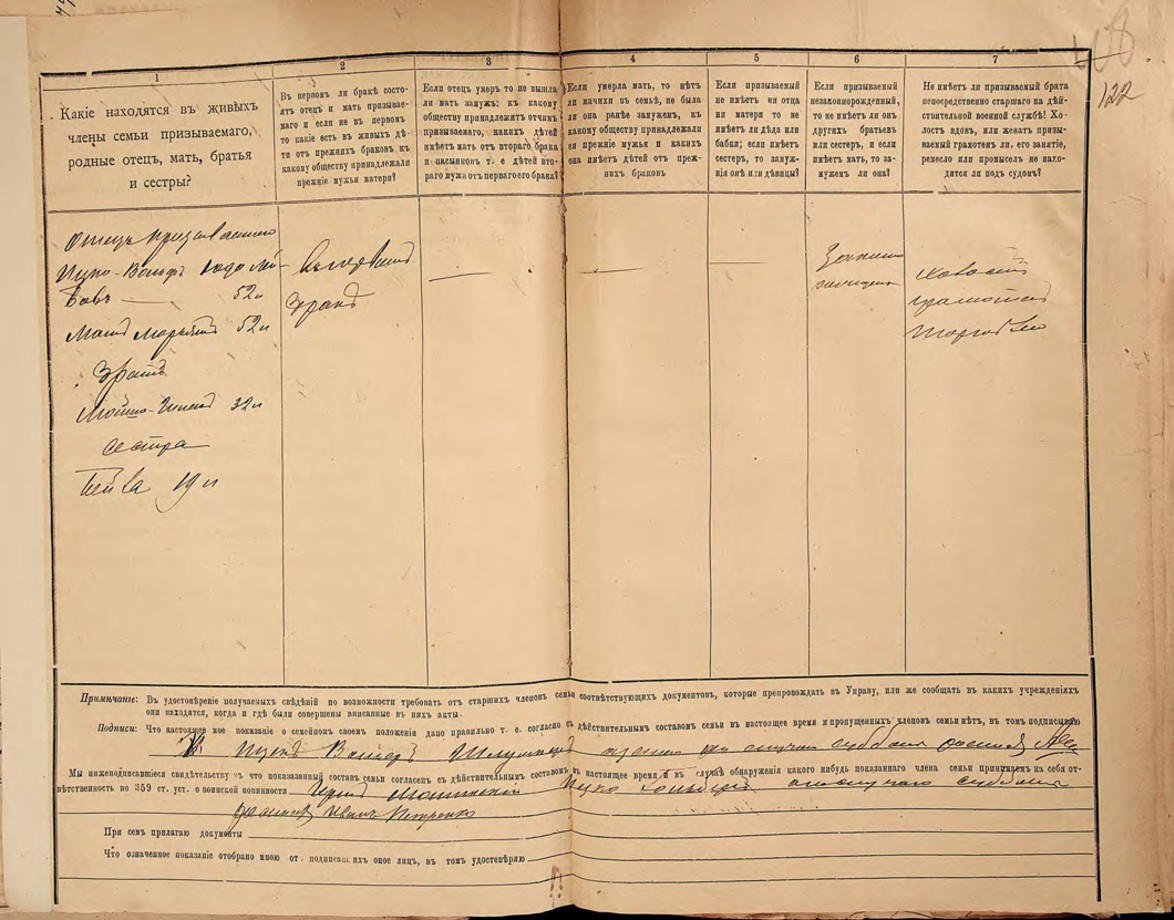 122
1
Какіе находятся въ живыхъ
члены семьи призываемаго,
родные отецъ, мать, братья
и сестры?
2
Въ первомъ ли бракѣ состо-
ятъ отецъ и мать призывае-
маго и если не въ первомъ
то какіе есть въ живыхъ дѣ-
ти отъ прежнихъ браковъ къ
какому обществу принадлежали
прежніе мужья матери?
3
Если отецъ умеръ то не вышла
ли мать замужъ: къ какому
обществу принадлежитъ отчимъ
призываемаго, какихъ дѣтей
имѣетъ мать отъ втораго брака
и пасынковъ т. е дѣтей вто-
раго мужа отъ перваго его брака?
4
Если умерла мать, то нѣтъ
ли мачихи въ семьѣ, не была
ли она ранѣе замужемъ, къ
какому обществу принадлежали
ея прежніе мужья и какихъ
она имѣетъ дѣтей отъ преж-
нихъ браковъ
5
Если призываемый
не имѣетъ ни отца
ни матери то не
имѣетъ ли дѣда или
бабки; если имѣетъ
сестеръ, то замуж-
нія онѣ или дѣвицы?
6
Если призываемый
незаконорожденный,
то не имѣетъ ли онъ
другихъ братьевъ
или сестеръ, и если
имѣетъ мать, то за-
мужемъ ли она?
7
Не имѣетъ ли призываемый брата
непосредственно старшаго на дѣй-
ствительной военной службѣ! Хо-
лостъ вдовъ, или женатъ призы-
ваемый грамотенъ ли, его занятіе,
ремесло или промыселъ не нахо-
дится ли подъ судомъ?
Отецъ призываемаго
Ицко-Вольфъ
52 л
52 л
Братъ
Мойшо- 32 л
сестра
Бейла 19 л
Братъ
Холостъ
грамотенъ
Торговля
Примѣчаніе: Въ удостовѣреніе получаемыхъ свѣдѣній по возможности требовать отъ старшихъ членовъ семьи соотвѣтствующихъ документовъ, которые препровождать въ Управу, или же сообщать въ какихъ учрежденіяхъ
они находятся, когда и гдѣ были совершены вписанные въ нихъ акты.
Подписи: Что настоящее мое показаніе о семейномъ своемъ положеніи дано правильно т. е. согласно съ дѣйствительнымъ составомъ семьи въ настоящее время и пропущенныхъ членовъ семьи нѣтъ, въ томъ подписываю
по случаю субботы
Мы нижеподписавшіеся свидѣтельствуемъ что показазанный составъ семьи согласенъ съ дѣйствительнымъ составомъ въ настоящее время и въ случаѣ обнаруженія какого нибудь показаннаго члена семьи принимаемъ на себя от-
вѣтственность по 359 ст. уст. о воинской повинности Ицко субботы
Иванъ Петренко
При семъ прилагаю документы
Что означенное показаніе отобрано мною отъ подписавшихъ оное лицъ, въ томъ удостовѣряю